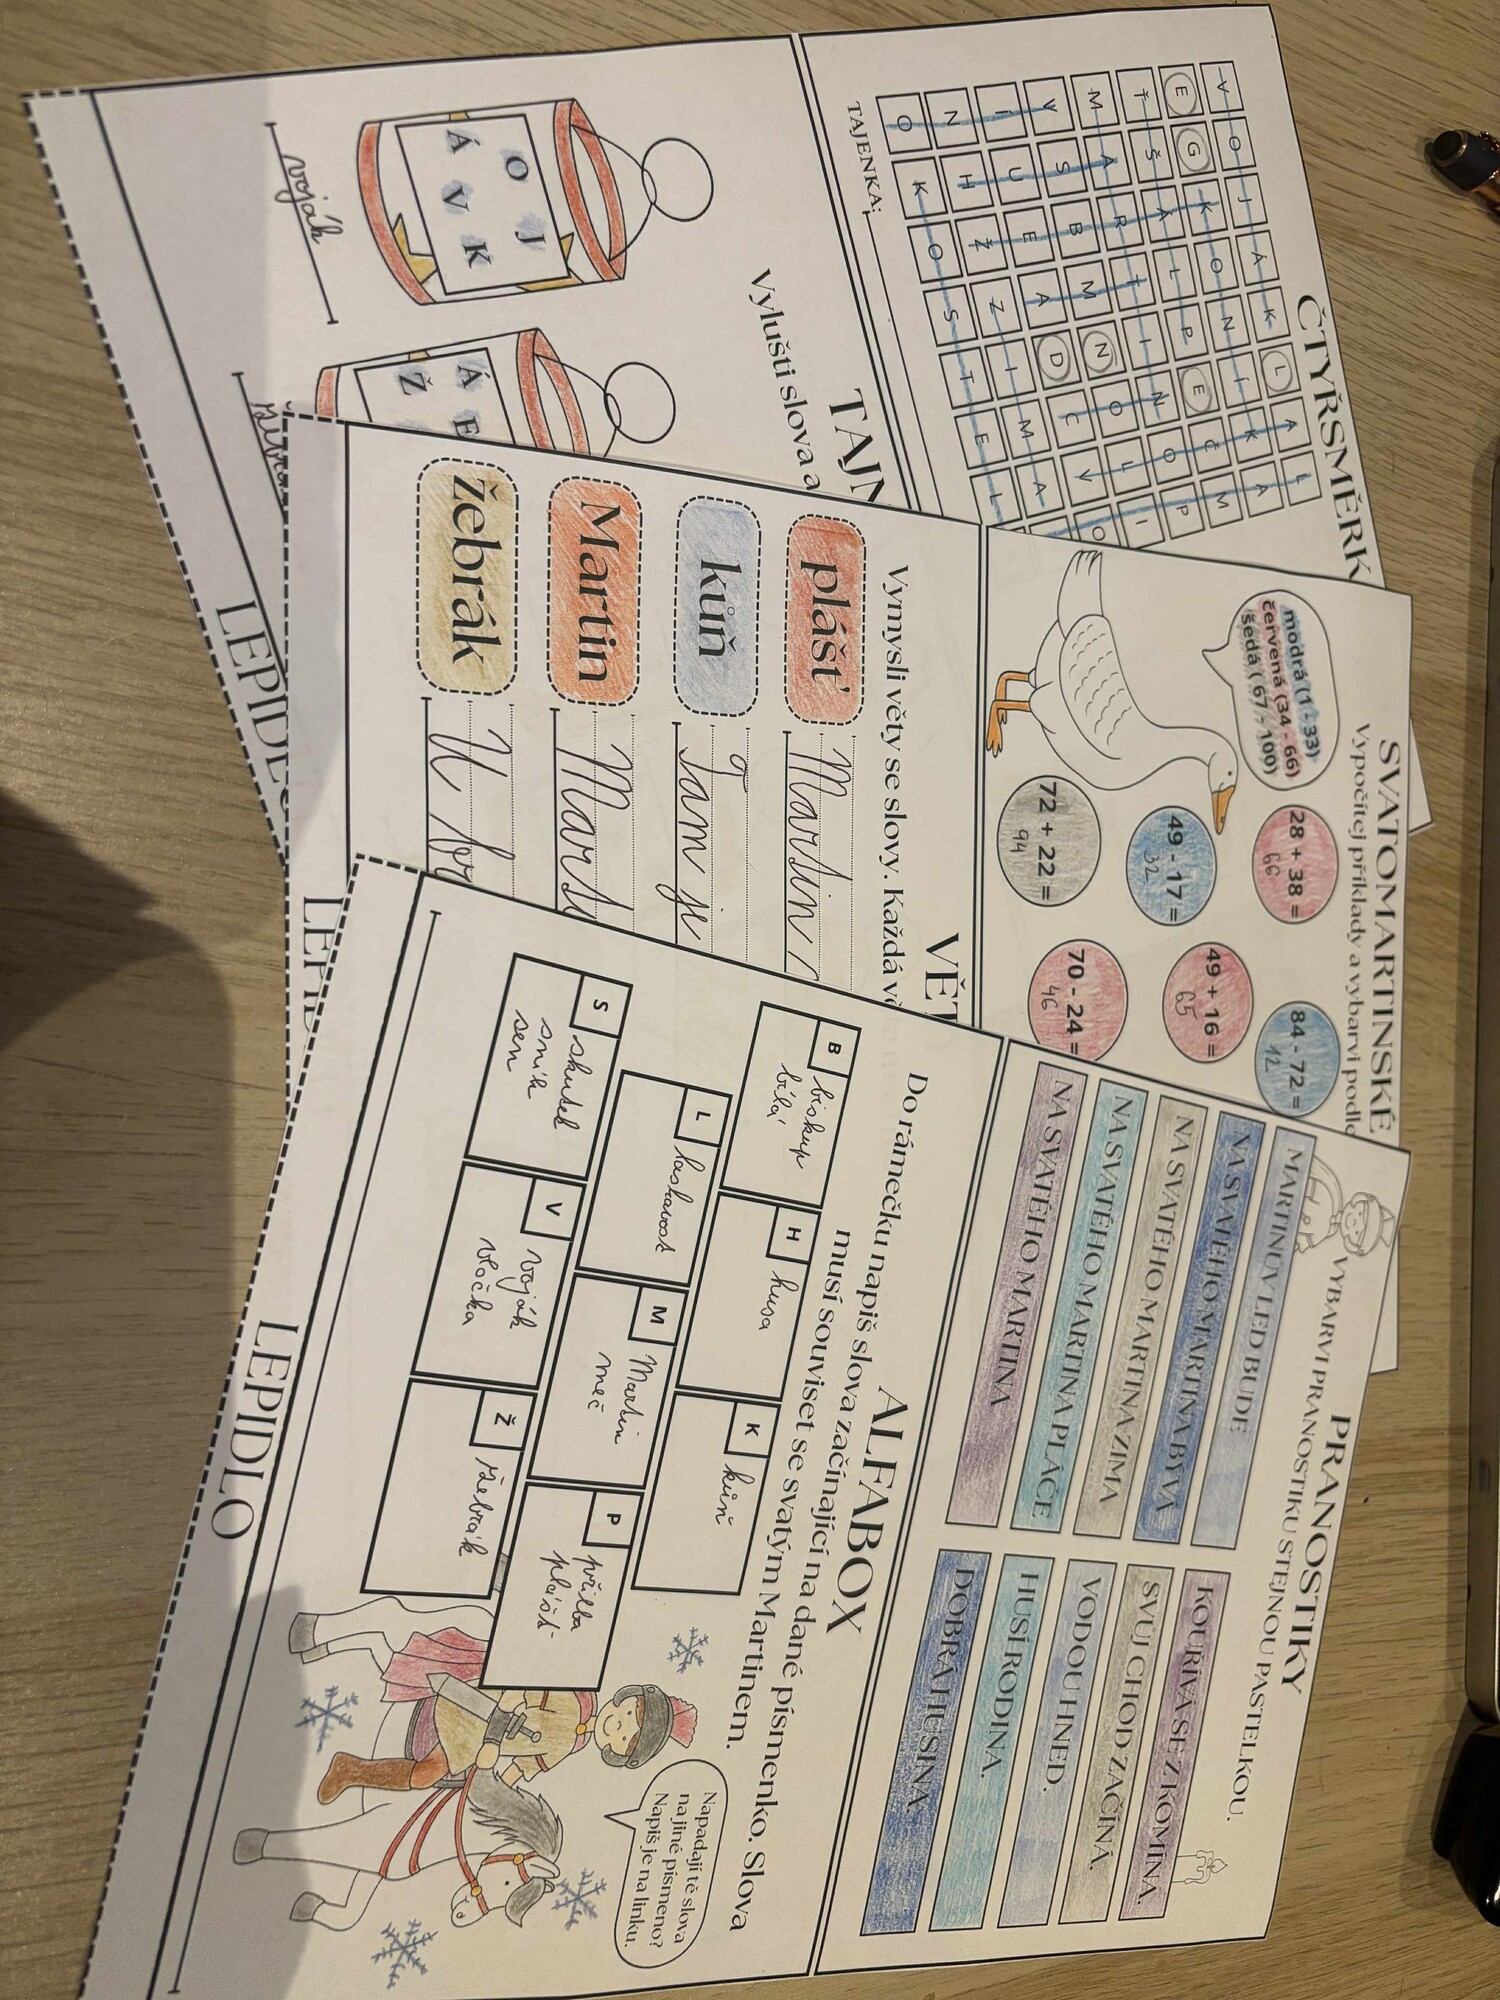 ČTYŘSMĚRK
V O J Á K L A L
E G K O N Í K A
Ť Š Á L P E Č M
M A R T I N O P
V S B M N O L I
Í U E A D C V O
N H Ž Z I M A
O K O S T E L
TAJENKA:
TAJN
Vylušti slova a
O J
Á V K
voják
Á E
Ž
LEPIDL
SVATOMARTINSKÉ
Vypočítej příklady a vybarvi podle
modrá (1 - 33)
červená (34 - 66)
šedá (67 - 100)
28 + 38 =
66
84 - 72 =
12
49 - 17 =
32
49 + 16 =
65
72 + 22 =
94
70 - 24 =
46
VĚT
Vymysli věty se slovy. Každá vě
plášť
Martin
kůň
Tam je
Martin
Mart
žebrák
U br
LEPID
PRANOSTIKY
VYBARVI PRANOSTIKU STEJNOU PASTELKOU.
MARTINŮV LED BUDE
KOUŘÍVÁ SE Z KOMÍNA.
NA SVATÉHO MARTINA BÝVÁ
SVŮJ CHOD ZAČÍNÁ.
NA SVATÉHO MARTINA ZIMA
VODOU HNED.
NA SVATÉHO MARTINA PLÁČE
HUSÍ RODINA.
NA SVATÉHO MARTINA
DOBRÁ HUSINA.
ALFABOX
Do rámečku napiš slova začínající na dané písmenko. Slova
musí souviset se svatým Martinem.
B
biskup
bílá
H
husa
K
kůň
L
laskavost
M
Martin
meč
P
přilba
plášť
S
skutek
sníh
sen
V
voják
vločka
Ž
žebrák
Napadají tě slova
na jiné písmeno?
Napiš je na linku.
LEPIDLO